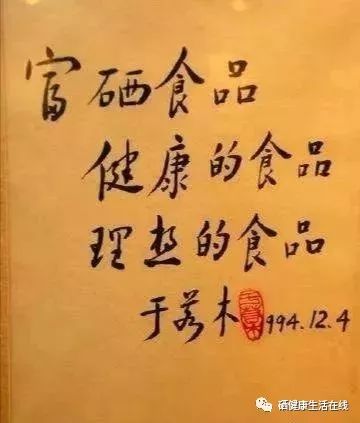 富硒食品
健康的食品
理想的食品
于若木 1994.12.4
硒健康生活在线